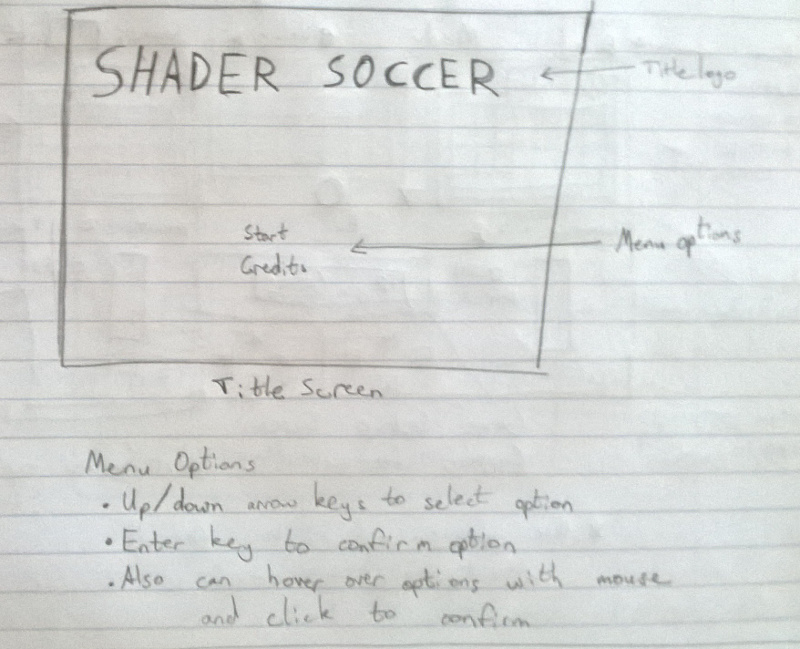 SHADER SOCCER
Title logo
Start
Credits
Menu options
Title Screen
Menu Options
• Up/down arrow keys to select option
• Enter key to confirm option
• Also can hover over options with mouse
and click to confirm